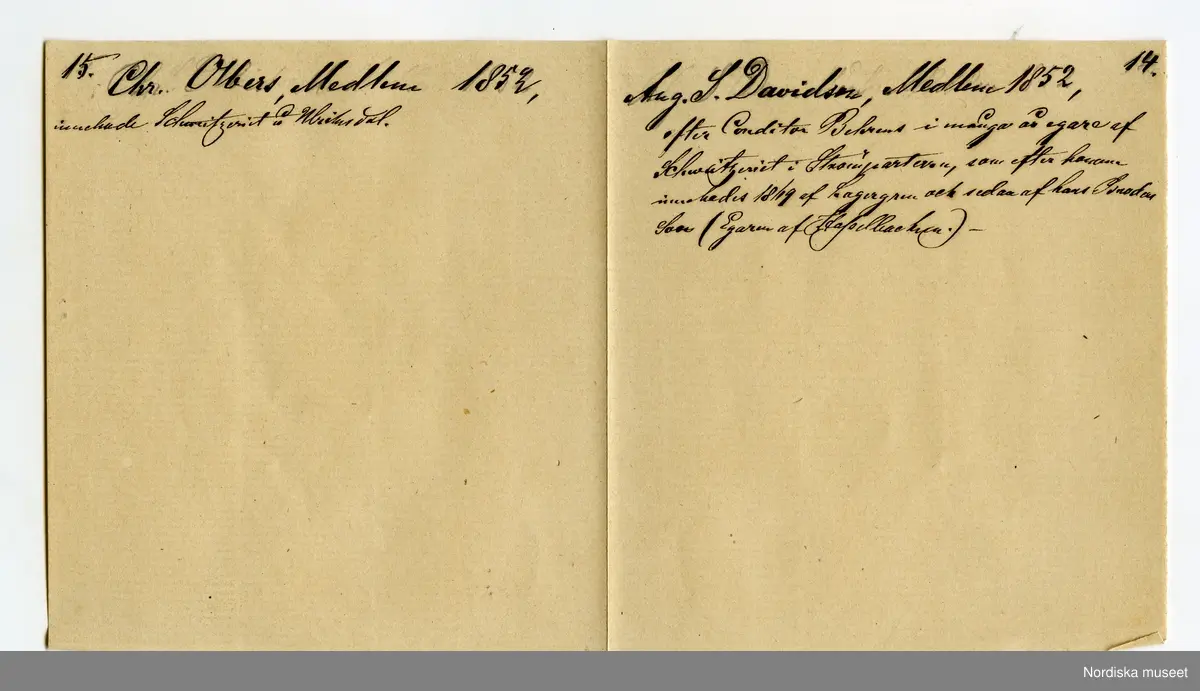 15.
Chr. Olbers, Medlem 1852,
innehade Schweitzeriet å Ulriksdal.
14.
Aug. S. Davidson, Medlem 1852,
efter Conditor Behrens i många år egare af
Schweitzeriet i Strömparterren, som efter honom
innehades af Lagergren och sedan af hans Broders
Son (Egaren af Hasselbacken.) –
Nordiska museet